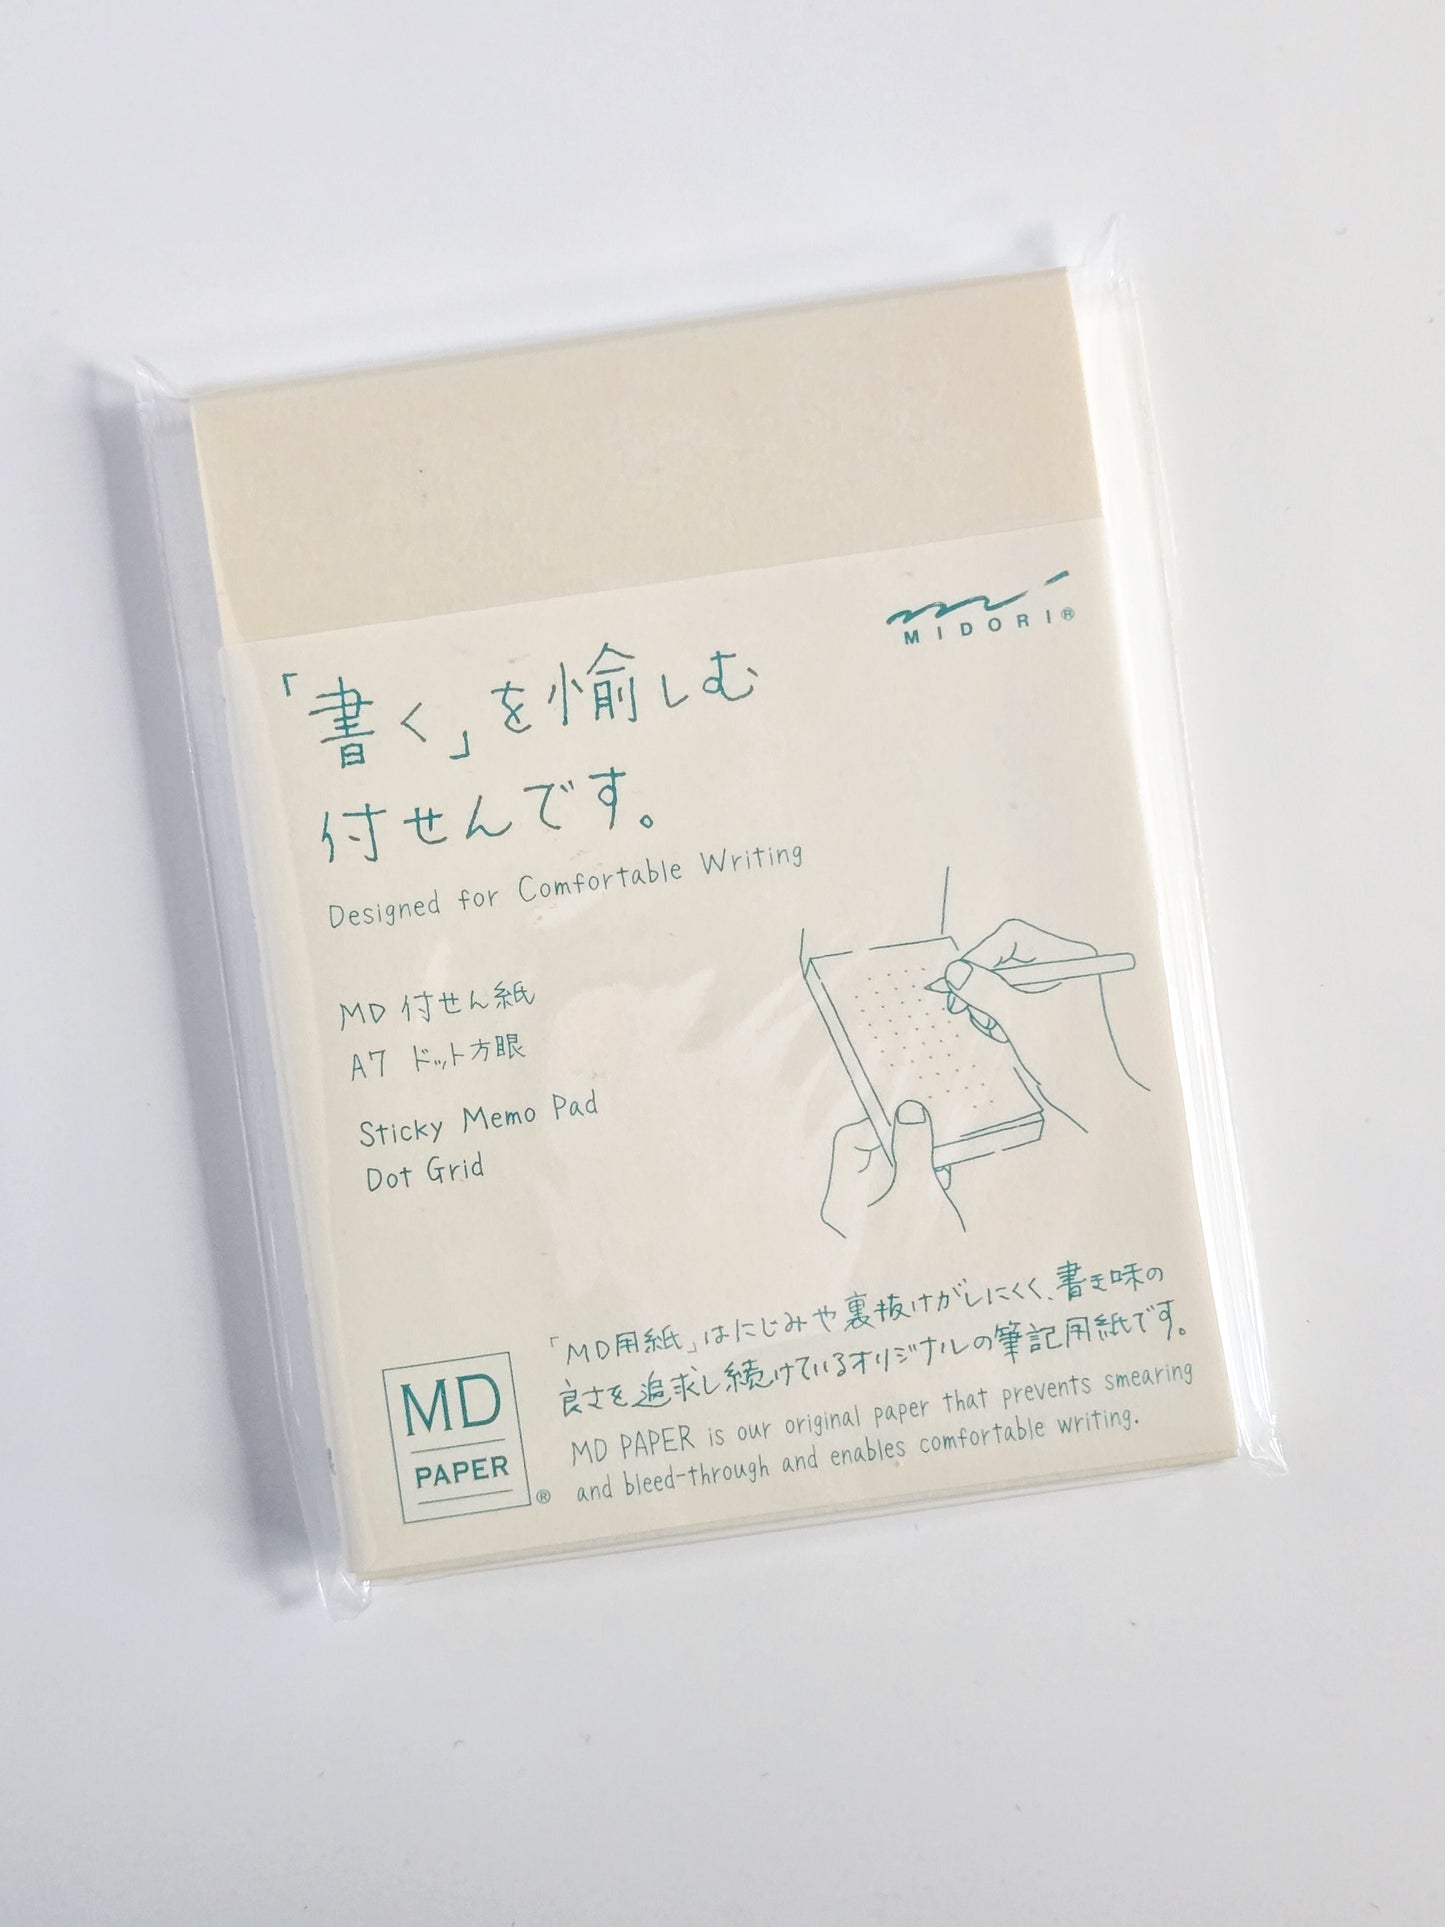 MIDORI®
「書く」を愉しむ
付せんです。
Designed for Comfortable Writing
MD 付せん紙
A7 ドット方眼
Sticky Memo Pad
Dot Grid
「MD用紙」はにじみや裏抜けがしにくく、書き味の
良さを追求し続けているオリジナルの筆記用紙です。
MD PAPER is our original paper that prevents smearing
and bleed-through and enables comfortable writing.
MD
PAPER
®